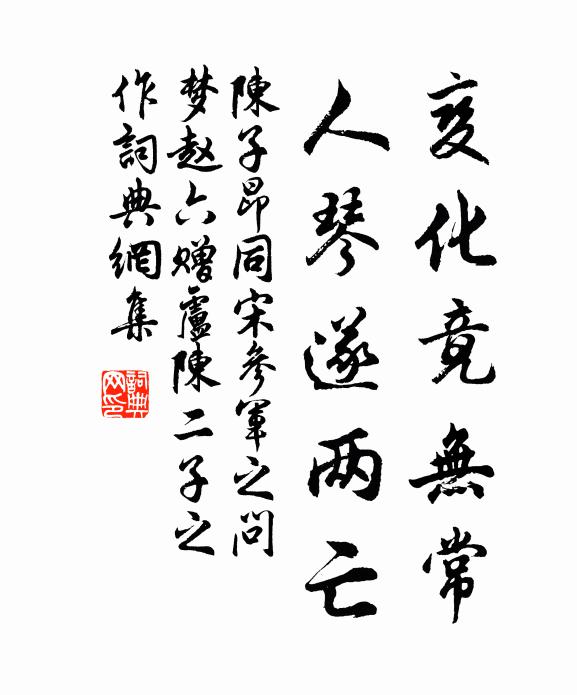 变化竟無常
人琴遂两亡
陳子昂同宋参軍之問
梦赵六赠盧陳二子之
作詞典網集
詞典
网印